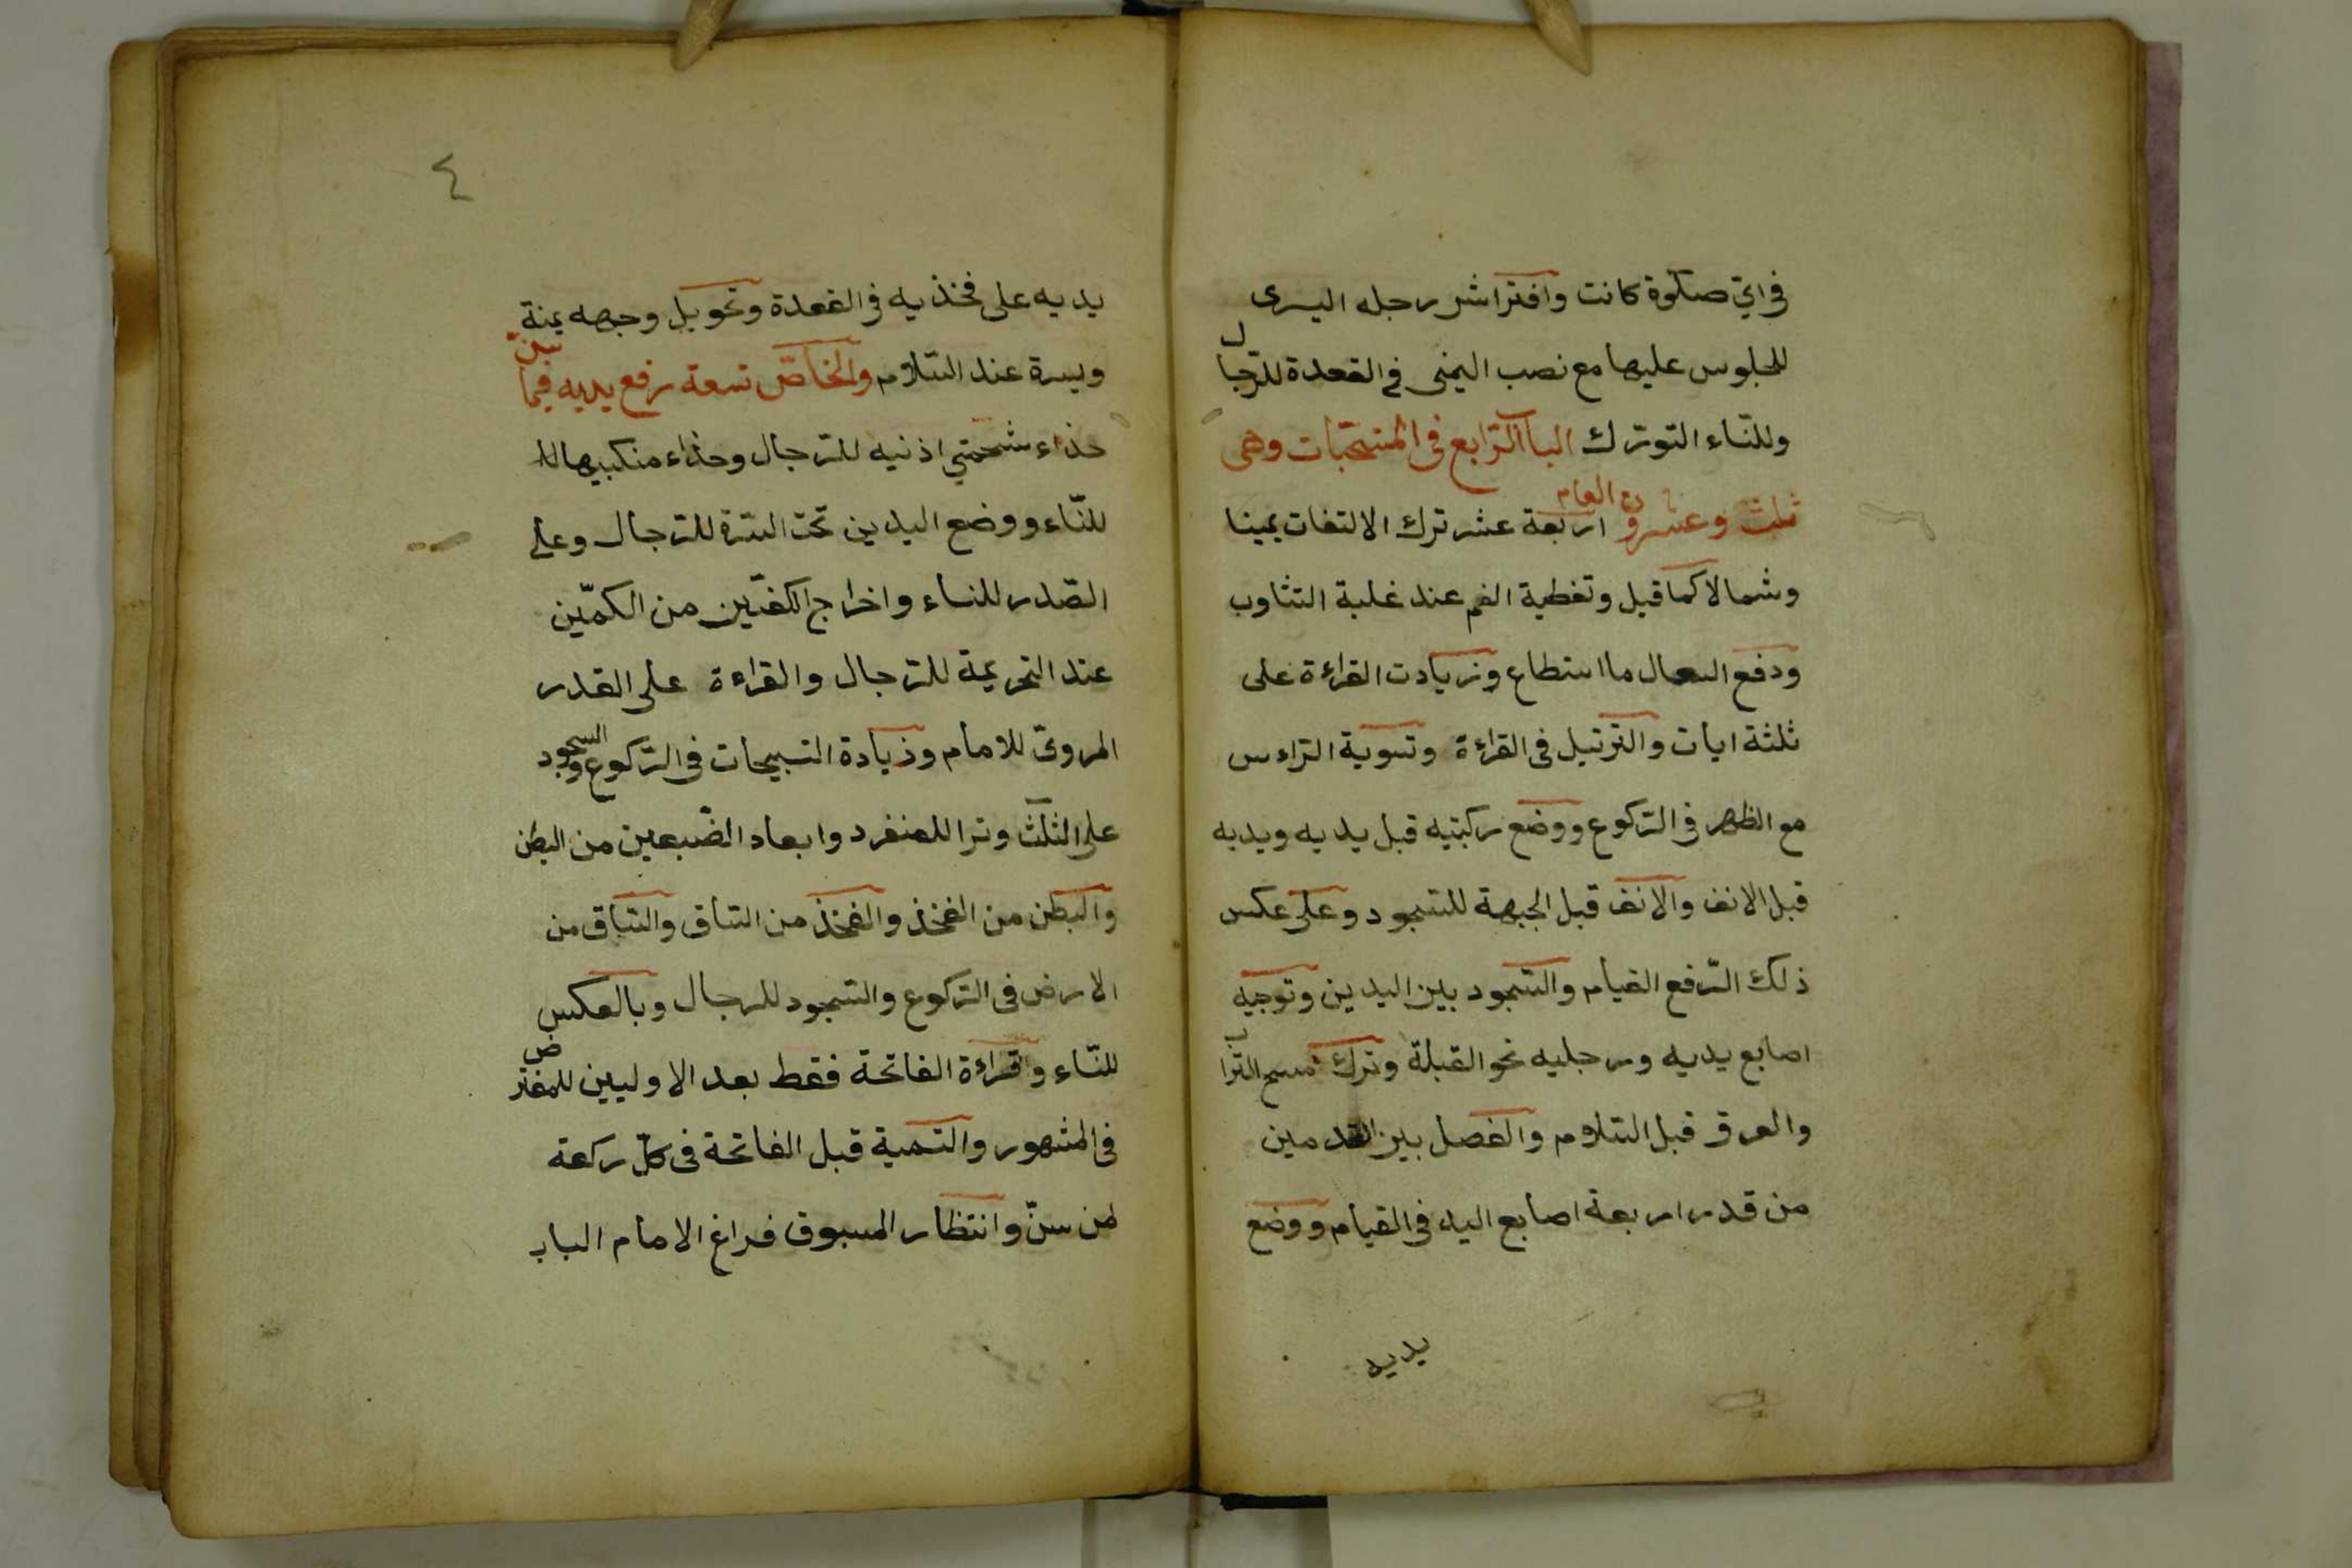 في اي صلوة كانت وافتراش رجله اليسرى
للجلوس عليها مع نصب اليمنى في القعدة للرجال
وللنساء التورك الباب الرابع في المستحبات وهي
ثلث وعشرون العام اربعة عشر ترك الالتفات يمينا
وشمالا كما قبل وتغطية الفم عند غلبة التثاوب
ودفع السعال ما استطاع وزيادت القراءة على
ثلثة ايات والترتيل في القراءة وتسوية الراس
مع الظهر في الركوع ووضع ركبتيه قبل يديه ويديه
قبل الانف والانف قبل الجبهة للسجود وعلى عكس
ذلك الرفع القيام والسجود بين اليدين وتوجيه
اصابع يديه ورجليه نحو القبلة وترك مسح التراب
والعرق قبل السلام والفصل بين القدمين
من قدر اربعة اصابع اليد في القيام ووضع
يديه
٤
يديه على فخذيه في القعدة وتحويل وجهه يمنة
ويسرة عند السلام والخاص تسعة رفع يديه فيما سن
حذاء شحمتي اذنيه للرجال وحذاء منكبيها
للنساء ووضع اليدين تحت السرة للرجال وعلى
الصدر للنساء واخراج الكفين من الكمين
عند التحريمة للرجال والقراءة على القدر
المروي للامام وزيادة التسبيحات في الركوع والسجود
على الثلث وترا للمنفرد وابعاد الضبعين من البطن
والبطن من الفخذ والفخذ من الساق والساق من
الارض في الركوع والسجود للرجال وبالعكس
للنساء وقراءة الفاتحة فقط بعد الاوليين للمفترض
في المشهور والتسمية قبل الفاتحة في كل ركعة
لمن سن وانتظار المسبوق فراغ الامام الباب